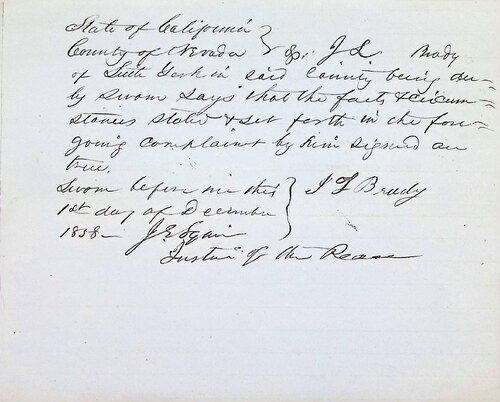 State of California }
County of Nevada } ss. J L Brady
of Little York in said County being du=
ly sworn says that the facts & circum=
stances stated & set forth in the fore=
going complaint by him signed are
true.
Sworn before me this } J L Brady
1st day of December
1858 — J E Squire
Justice of the Peace